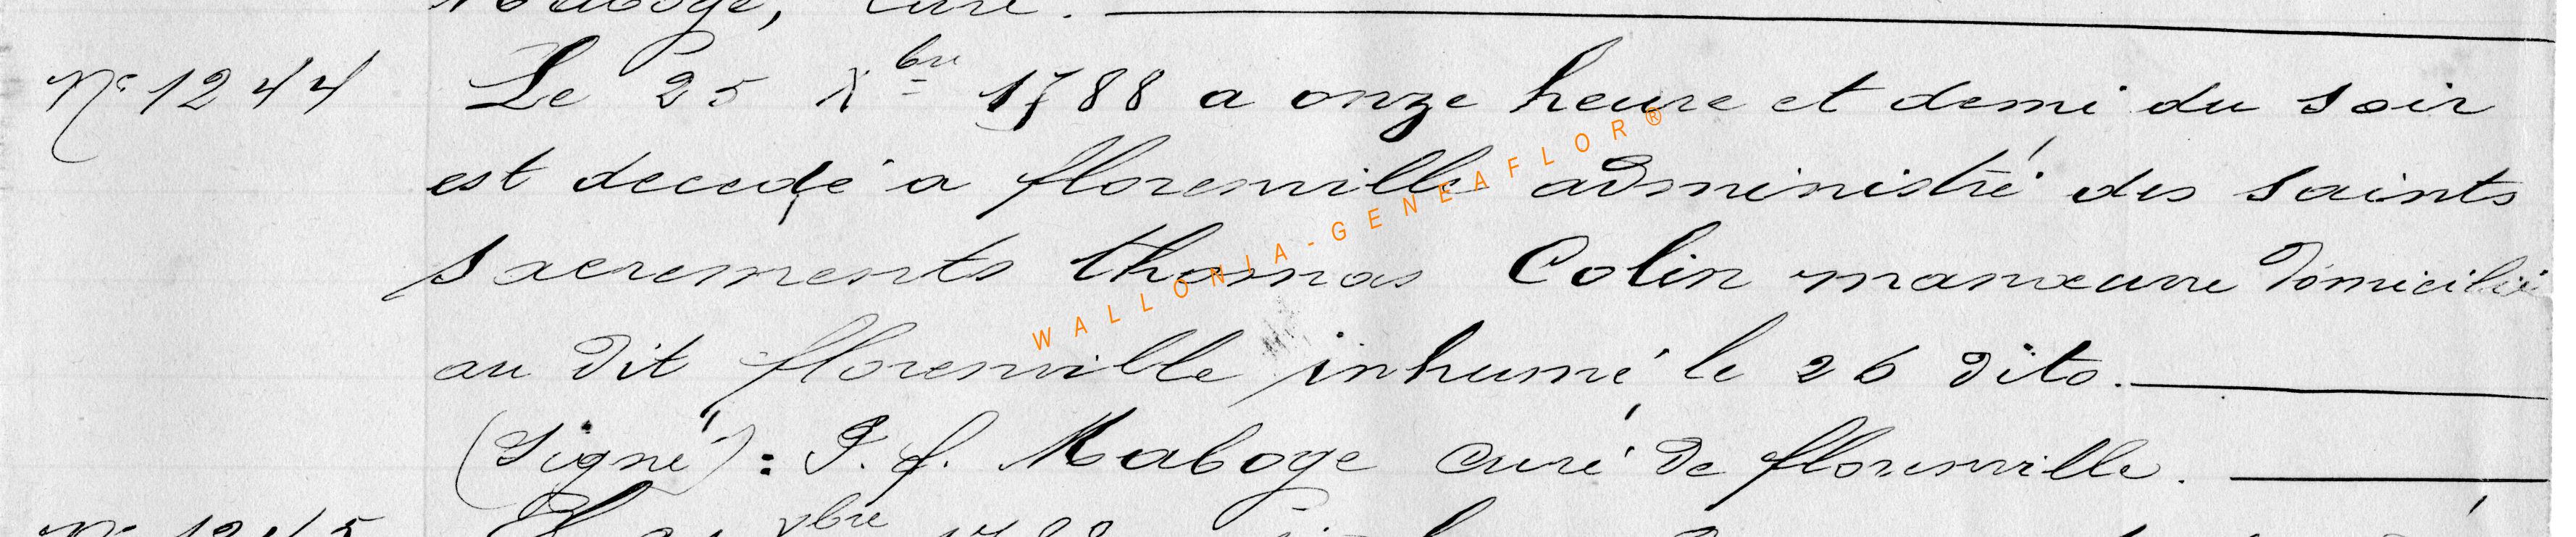 Maboge, curé.
N° 1244 Le 25 Xbre 1788 a onze heure et demi du soir
est decedé a florenville administré des saints
sacrements thomas Colin manœuvre domicilié
au dit florenville inhumé le 26 dito.
(Signé) : J. f. Maboge curé de florenville.
N° 1245 xbre 1788
WALLONIA-GENEAFLOR®